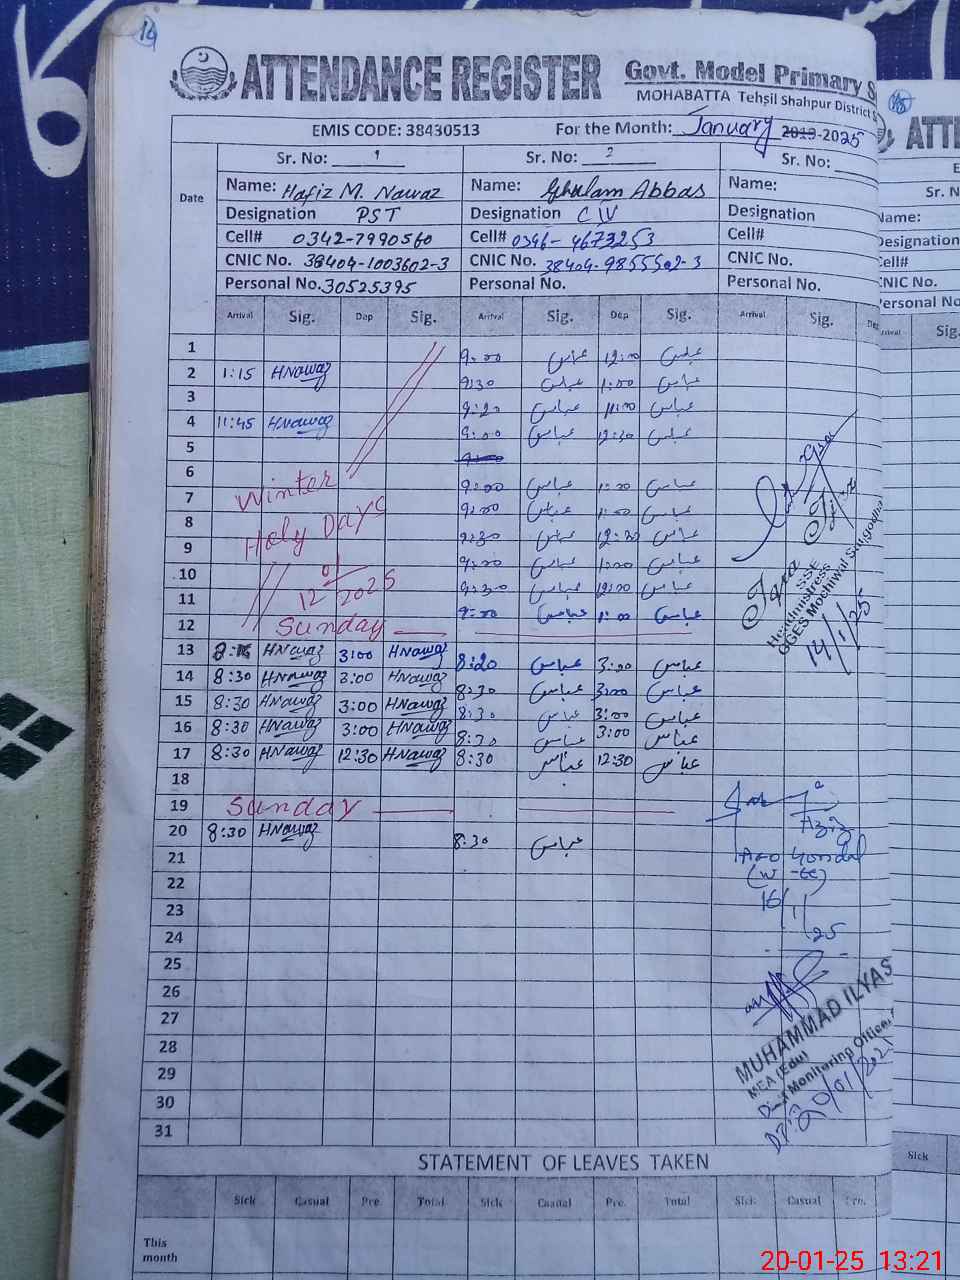 14
ATTENDANCE REGISTER
Govt. Model Primary S
MOHABATTA Tehsil Shahpur District S
EMIS CODE: 38430513 For the Month: January 2019-2025
Date
Sr. No: 1 Sr. No: 2 Sr. No:
Name: Hafiz M. Nawaz Name: Ghulam Abbas Name:
Designation PST Designation C IV Designation
Cell# 0342-7990560 Cell# 0346-4673253 Cell#
CNIC No. 38404-1003602-3 CNIC No. 38404-9855502-3 CNIC No.
Personal No. 30525395 Personal No. Personal No.
Arrival Sig. Dep Sig. Arrival Sig. Dep Sig. Arrival Sig. Dep
1 9:00 عباس 12:00 عباس
2 1:15 HNawaz 9:30 عباس 1:00 عباس
3 9:20 عباس 11:00 عباس
4 11:45 HNawaz 9:00 عباس 12:30 عباس
5
6 9:00 عباس 1:00 عباس
7 Winter 9:00 عباس 1:00 عباس
8 Holy Days 9:30 عباس 12:30 عباس
9 9:00 عباس 1:00 عباس
10 9:30 عباس 12:00 عباس
11 12/01/2025 9:00 عباس 1:00 عباس
12 Sunday
13 HNawaz 3:00 HNawaz 8:20 عباس 3:00 عباس
14 8:30 HNawaz 3:00 HNawaz 8:30 عباس 3:00 عباس
15 8:30 HNawaz 3:00 HNawaz 8:30 عباس 3:00 عباس
16 8:30 HNawaz 3:00 HNawaz 8:30 عباس 3:00 عباس
17 8:30 HNawaz 12:30 HNawaz 8:30 عباس 12:30 عباس
18
19 Sunday
20 8:30 HNawaz 8:30 عباس
21
22
23
24
25
26
27
28
29
30
31
SSE
Headmistress
GGES Mochiwal Sargodha
14/1/25
Aziz
16/1/25
MUHAMMAD ILYAS
MEA (Edu)
Monitoring Officer
DT: 20/01/202
STATEMENT OF LEAVES TAKEN
Sick Casual Pre. Total Sick Casual Pre. Total Sick Casual Pre.
This
month
15
ATT
E
Sr. N
Name:
Designation
Cell#
CNIC No.
Personal No
Arrival Sig.
Sick
20-01-25 13:21